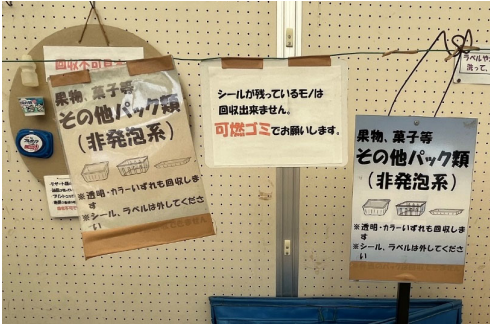 回収不可
果物、菓子等
その他パック類
(非発泡系)
※透明・カラーいずれも回収しま
す
※シール、ラベルは外してくださ
い
シールが残っているモノは
回収出来ません。
可燃ゴミでお願いします。
ラベルや
洗って、
果物、菓子等
その他パック類
(非発泡系)
※透明・カラーいずれも回収しま
す
※シール、ラベルは外してくださ
い